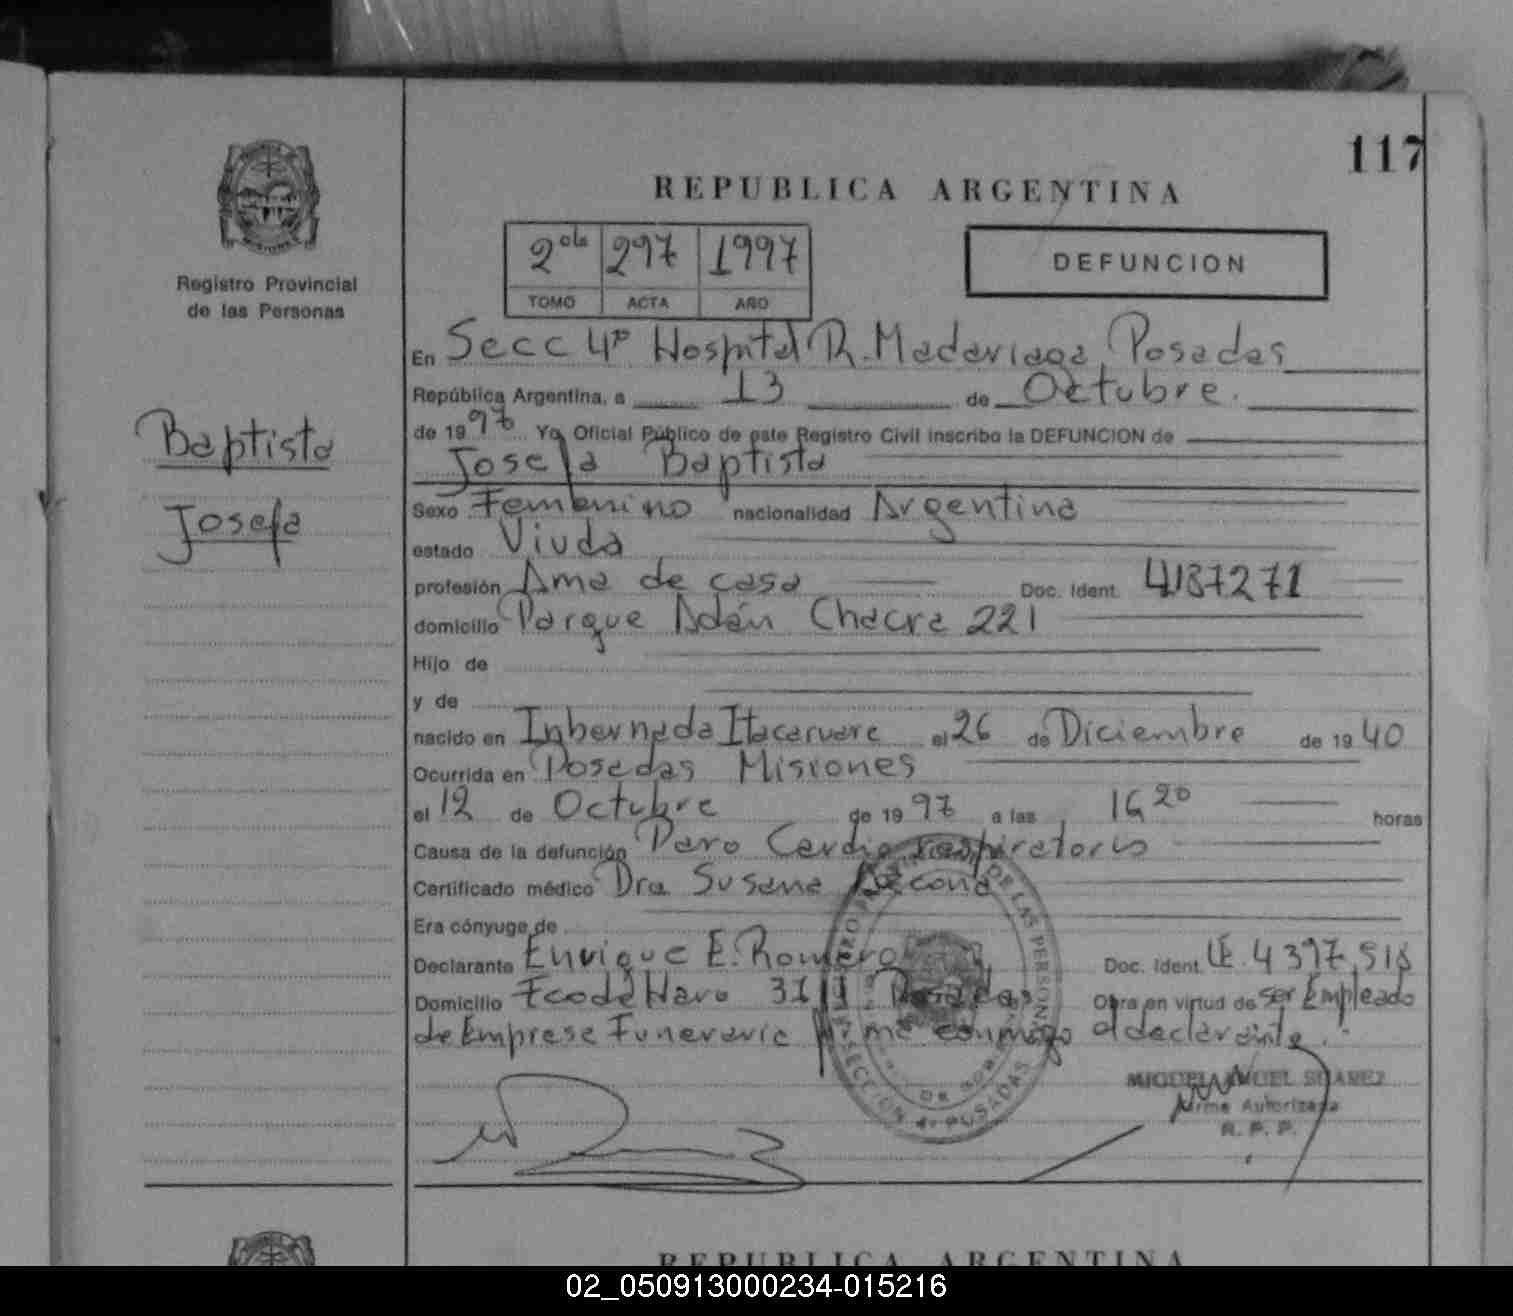 117
REPUBLICA ARGENTINA
MISIONES
Registro Provincial
de las Personas
2do 297 1997
TOMO ACTA AÑO
DEFUNCION
En Secc 4º Hospital R. Madariaga Posadas
República Argentina, a 13 de Octubre.
de 1997 Yo Oficial Público de este Registro Civil inscribo la DEFUNCION de
Josefa Baptista
Baptista
Josefa
Sexo Femenino nacionalidad Argentina
estado Viuda
profesión Ama de casa Doc. Ident. 4187271
domicilio Parque Adán Chacra 221
Hijo de
y de
nacido en Inbernada Itacaruare el 26 de Diciembre de 1940
Ocurrida en Posadas Misiones
el 12 de Octubre de 1997 a las 16 20 horas
Causa de la defunción Paro Cardio respiratorio
Certificado médico Dra. Susana
Era cónyuge de
Declarante Enrique E. Romero Doc. Ident. LE. 4397.518
Domicilio Fco de Haro Posadas Obra en virtud de ser Empleado
de Emprese Funeraria conmigo el declarante.
DE LAS PERSONAS
SECCION 4ª POSADAS
MIGUEL ANGEL SUAREZ
Firma Autorizada
R. P. P.
REPUBLICA ARGENTINA
02_050913000234-015216